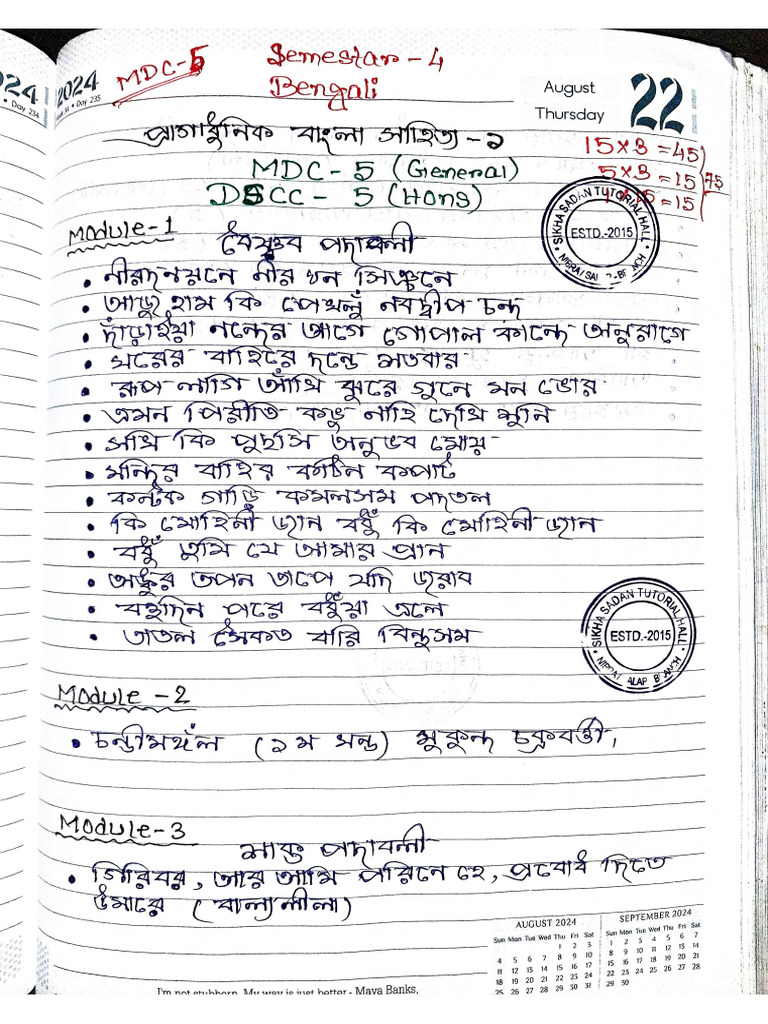 2024
Day 234
2024
Day 235
MDC-5
Semestar - 4
Bengali
August
Thursday
22
প্রাগাধুনিক বাংলা সাহিত্য - ১
15×3 = 45
MDC - 5 (General)
5×3 = 15
75
DSCC - 5 (Hons)
= 15
Module - 1
SIKHA SADAN TUTORIAL HALL
ESTD.-2015
বৈষ্ণব পদাবলী
• নীরদনয়নে নীর ঘন সিঞ্চনে
• আজু হাম কি পেখলুঁ নবদ্বীপ চন্দ
• দাঁড়াইয়া নন্দের আগে গোপাল কান্দে অনুরাগে
• ঘরের বাহিরে দন্ডে শতবার
• রূপ লাগি আঁখি ঝুরে গুনে মন ভোর
• এমন পিরীতি কভু নাহি দেখি শুনি
• সখি কি পুছসি অনুভব মোয়
• মন্দির বাহির কঠিন কপাট
• কন্টক গাড়ি কমলসম পদতল
• কি মোহিনী জান বঁধু কি মোহিনী জান
• বঁধু তুমি যে আমার প্রান
• অঙ্কুর তপন তাপে যদি জারব
• বহুদিন পরে বঁধুয়া এলে
• তাতল সৈকত বারি বিন্দুসম
SIKHA SADAN TUTORIAL HALL
ESTD.-2015
BRANCH
Module - 2
• চন্ডীমঙ্গল (১ম খন্ড) মুকুন্দ চক্রবর্তী,
Module - 3
শাক্ত পদাবলী
• গিরিবর, আর আমি পারিনে হে, প্রবোধ দিতে
উমারে (বাল্যলীলা)
AUGUST 2024
Sun Mon Tue Wed Thu Fri Sat
1 2 3
4 5 6 7 8 9 10
11 12 13 14 15 16 17
18 19 20 21 22 23 24
25 26 27 28 29 30 31
SEPTEMBER 2024
Sun Mon Tue Wed Thu Fri Sat
1 2 3 4 5 6 7
8 9 10 11 12 13 14
15 16 17 18 19 20 21
22 23 24 25 26 27 28
29 30
I'm not stubborn. My way is just better - Maya Banks,